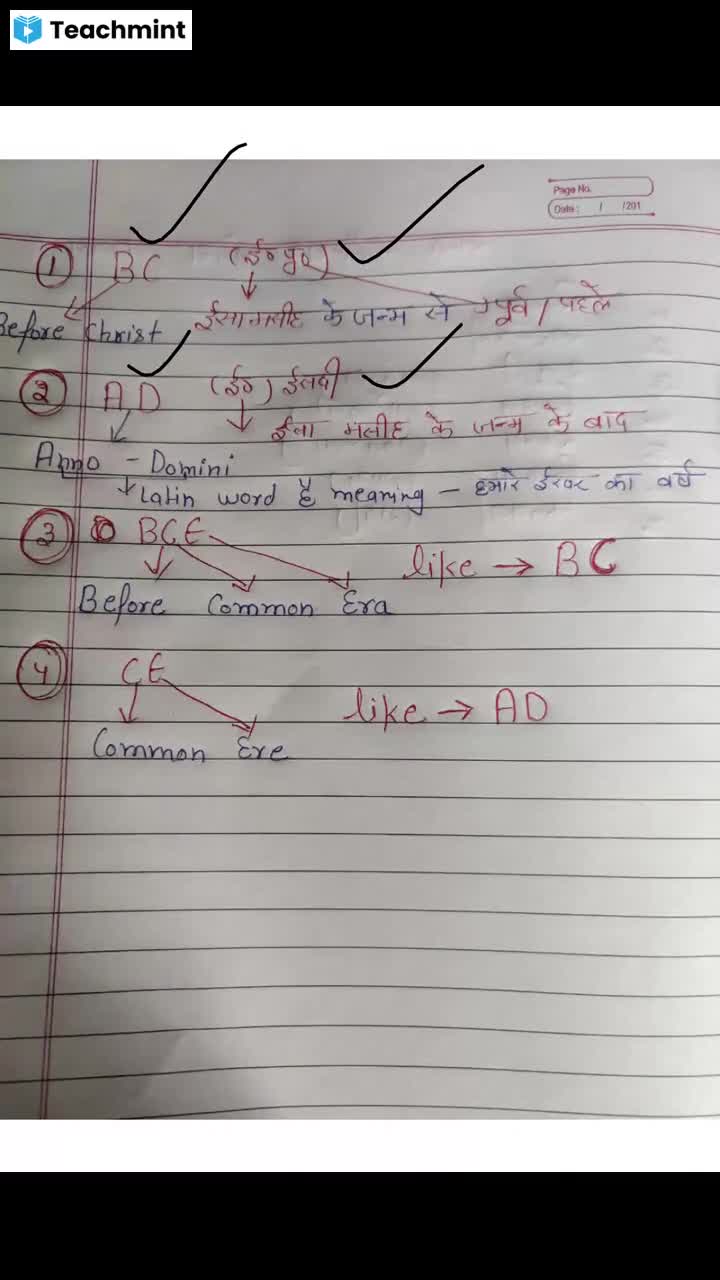 Teachmint
Page No.
Date : / /201
① BC (ई० पू०)
Before Christ ईसा मसीह के जन्म से पूर्व / पहले
② AD (ई०) ईसवी
ईसा मसीह के जन्म के बाद
Anno - Domini
Latin word है meaning - हमारे ईश्वर का वर्ष
③ BCE like → BC
Before Common Era
④ CE like → AD
Common Ere